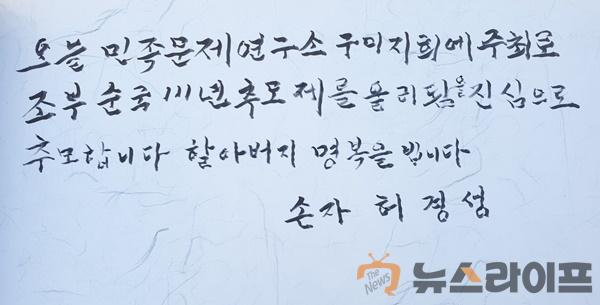 오늘 민족문제연구소 구미지회에 주최로
조부 순국 111년 추모제를 올리됨을 진심으로
추모합니다 할아버지 명복을 빕니다
손자 허경성
The News 뉴스라이프